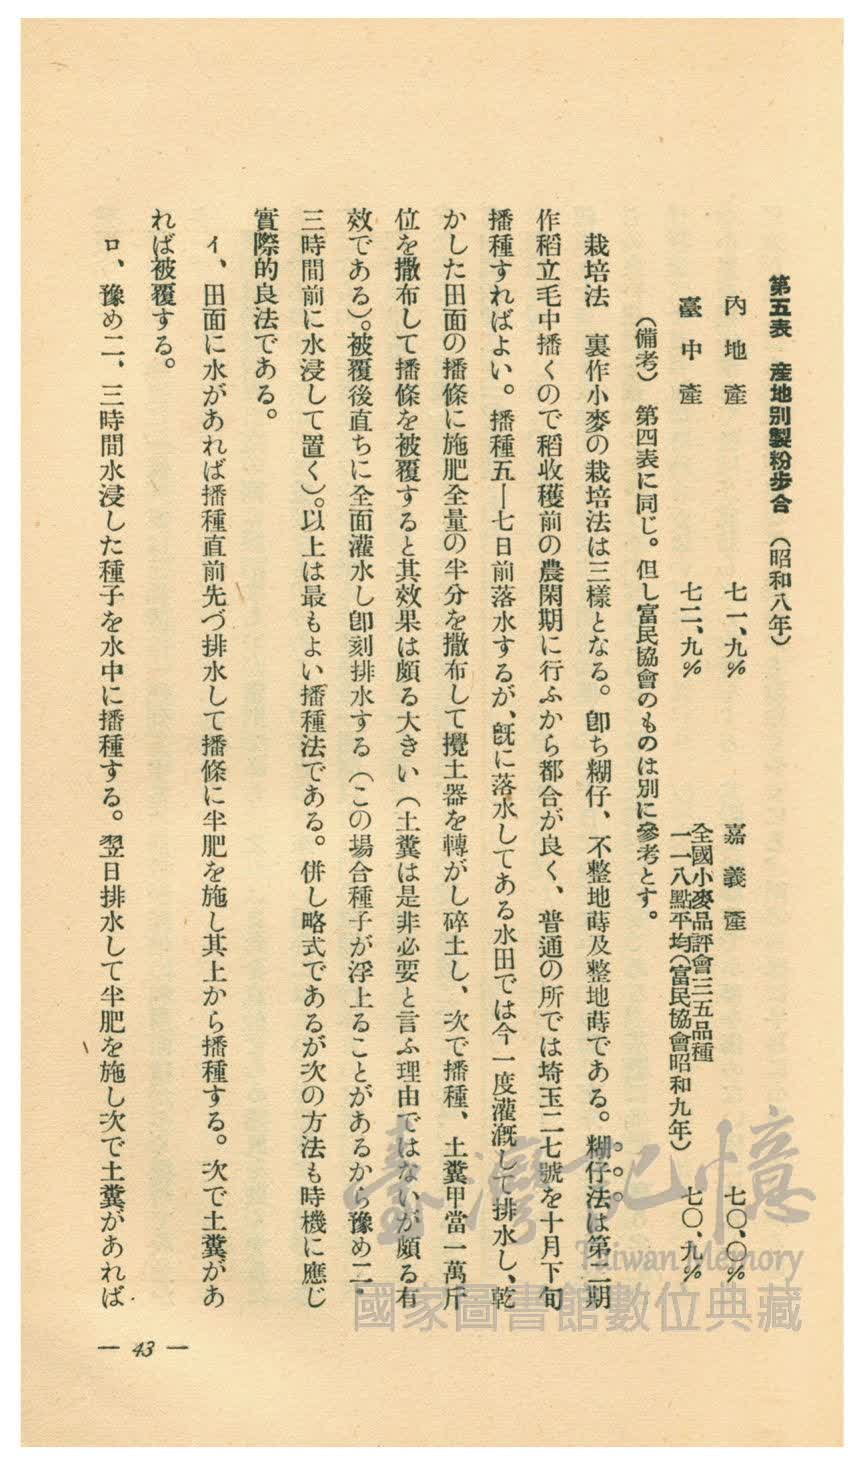 第五表　産地別製粉歩合（昭和八年）
內地産　七一、九％　嘉義産　七〇、〇％
臺中産　七二、九％　全國小麥品評會三五品種
一一八點平均（富民協會昭和九年）　七〇、九％
（備考）　第四表に同じ。但し富民協會のものは別に參考とす。
栽培法　裏作小麥の栽培法は三樣となる。卽ち糊仔、不整地蒔及整地蒔である。糊仔法は第二期
作稻立毛中播くので稻收穫前の農閑期に行ふから都合が良く、普通の所では埼玉二七號を十月下旬
播種すればよい。播種五—七日前落水するが、旣に落水してある水田では今一度灌漑して排水し、乾
かした田面の播條に施肥全量の半分を撒布して攪土器を轉がし碎土し、次で播種、土糞甲當一萬斤
位を撒布して播條を被覆すると其效果は頗る大きい（土糞は是非必要と言ふ理由ではないが頗る有
效である）。被覆後直ちに全面灌水し卽刻排水する（この場合種子が浮上ることがあるから豫め二、
三時間前に水浸して置く）。以上は最もよい播種法である。併し略式であるが次の方法も時機に應じ
實際的良法である。
イ、田面に水があれば播種直前先づ排水して播條に半肥を施し其上から播種する。次で土糞があ
れば被覆する。
ロ、豫め二、三時間水浸した種子を水中に播種する。翌日排水して半肥を施し次で土糞があれば
— 43 —
臺灣記憶
Taiwan Memory
國家圖書館數位典藏